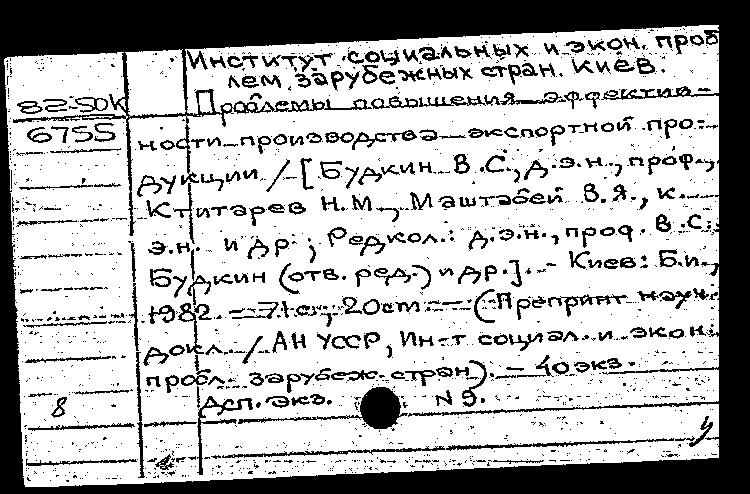 Институт социальных и экон. проб
лем зарубежных стран. Киев.
82-50К
Проблемы повышения эффектив-
6755
ности производства экспортной про-
дукции / [Будкин В.С., д.э.н., проф.,
Ктитарев Н.М., Маштабей В.Я., к.
э.н. и др.; Редкол.: д.э.н., проф. В.С.
Будкин (отв. ред.) и др.]. - Киев: Б.и.,
1982. - 71 с.; 20 cm. - (Препринт науч.
докл. / АН УССР, Ин-т социал. и экон.
пробл. зарубеж. стран). - 40 экз.
8
Асп. экз. № 9.
у